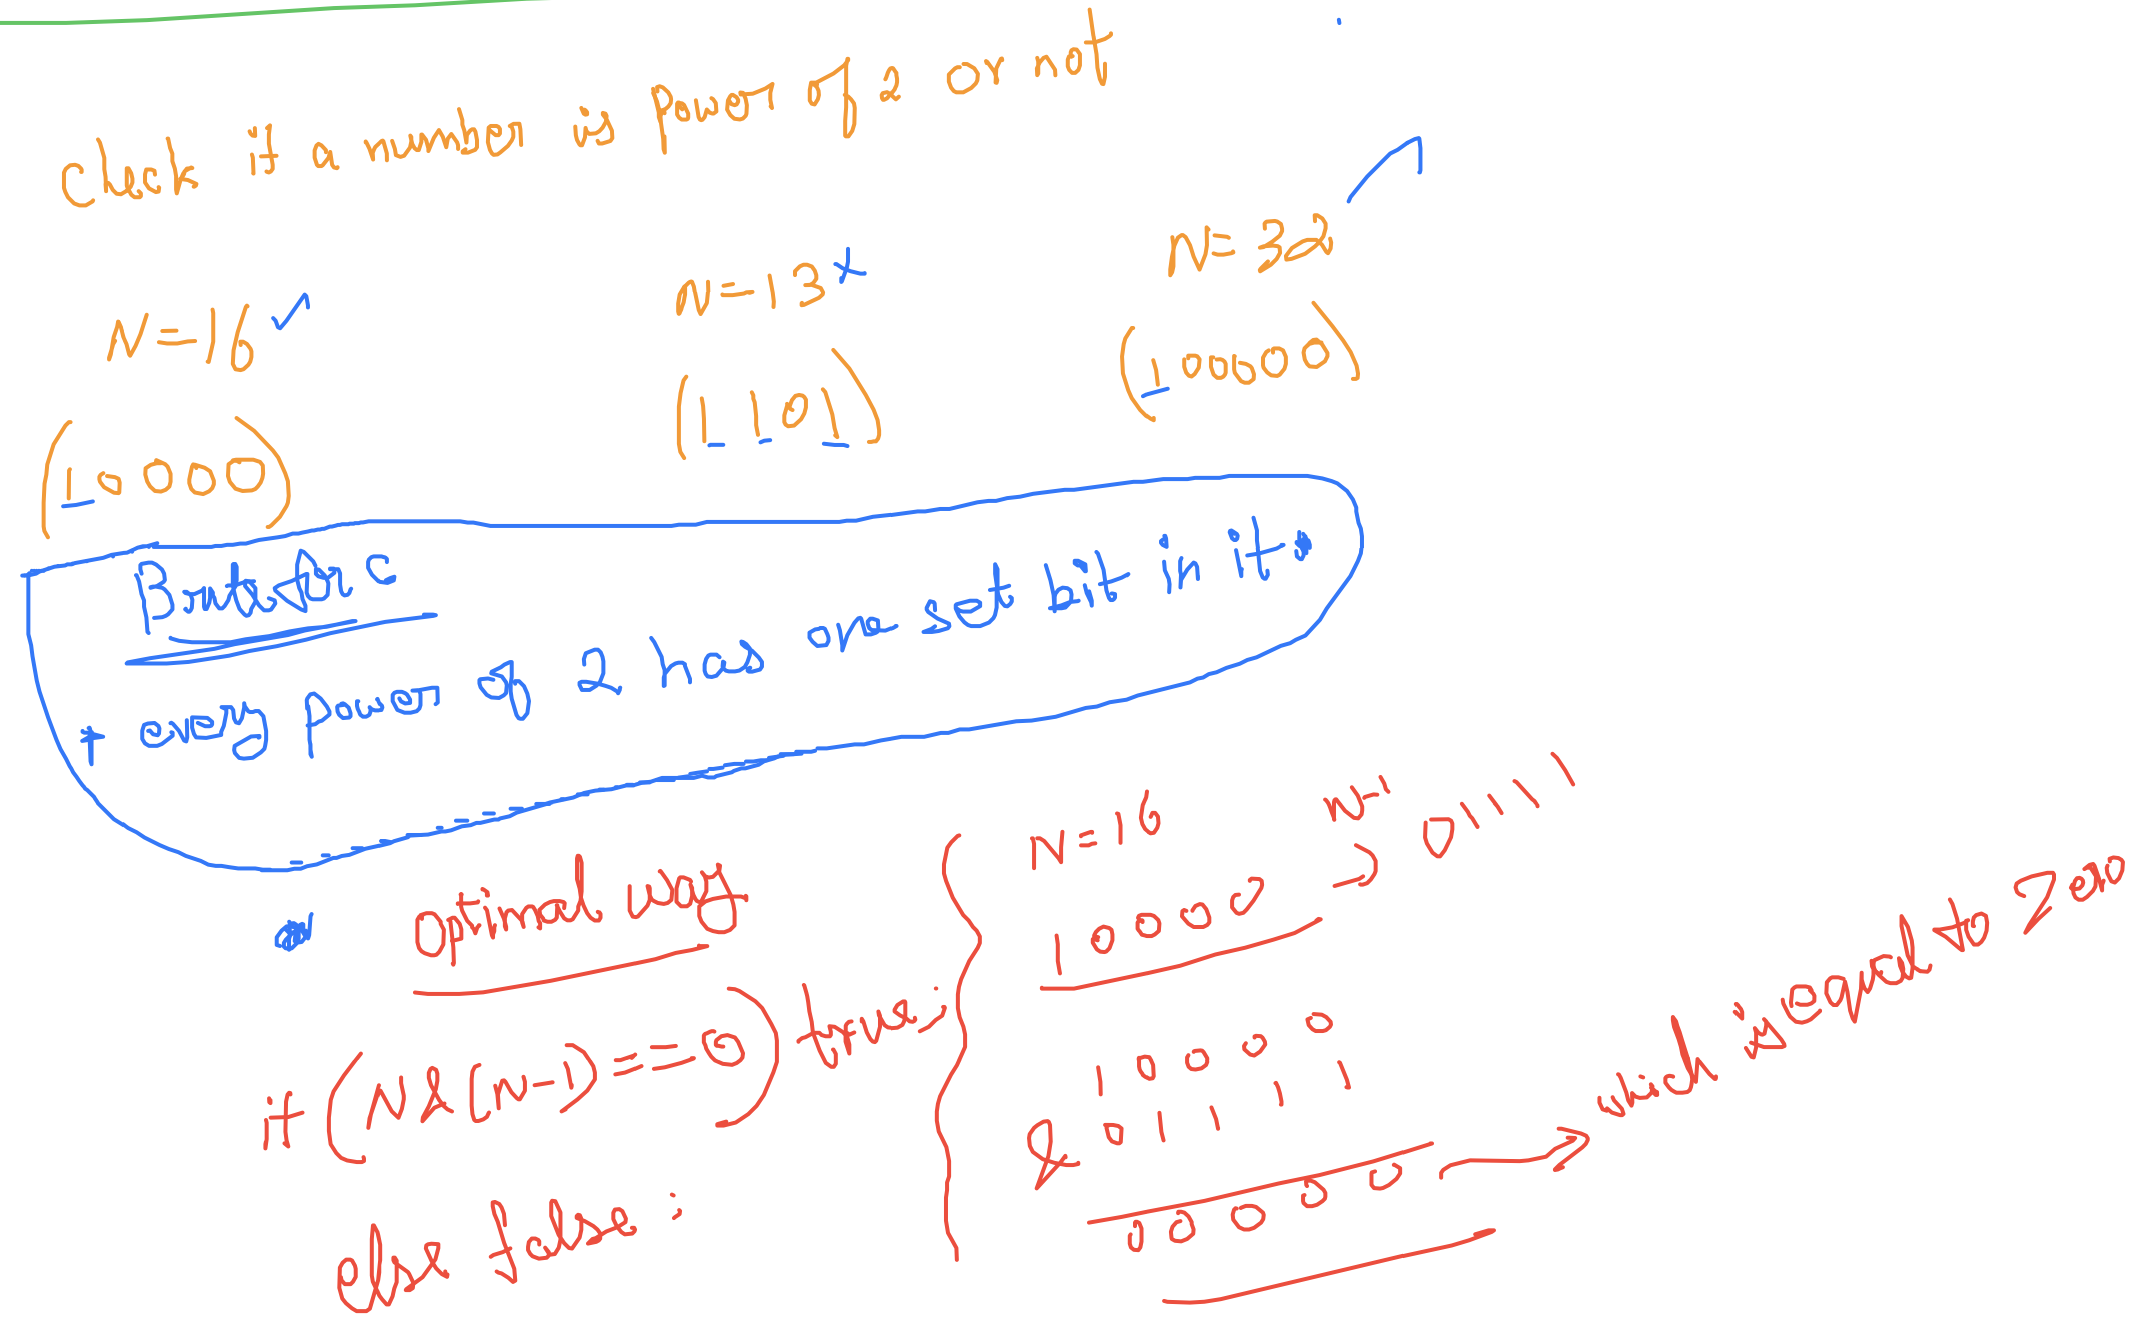 Check if a number is power of 2 or not
N=16 ✓
(10000)
N=13 x
(1101)
N=32
(100000)
Bruteforce
* every power of 2 has one set bit in it.
optimal way
if (N&(N-1)==0) true;
else false;
N=16 N-1
10000 → 01111
10000
& 01111
00000 → which is equal to zero